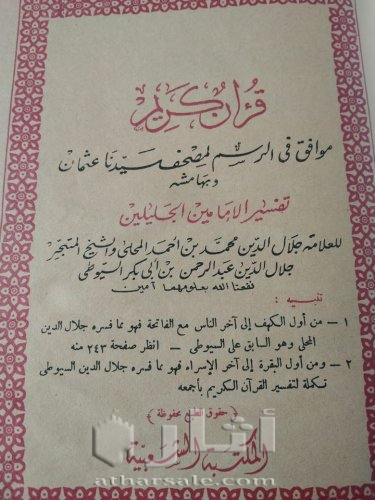 قرءان كريم
موافق في الرسم لمصحف سيدنا عثمان
وبهامشه
تفسير الإمامين الجليلين
للعلامة جلال الدين محمد بن أحمد المحلى والشيخ المتبحر
جلال الدين عبد الرحمن بن أبى بكر السيوطى
نفعنا الله بعلومهما آمين
تنبيه :
١ — من أول الكهف إلى آخر الناس مع الفاتحة فهو مما فسره جلال الدين
المحلى وهو السابق على السيوطى — انظر صفحة ٢٤٣ منه
٢ — ومن أول البقرة إلى آخر الإسراء فهو مما فسره جلال الدين السيوطى
تكملة لتفسير القرآن الكريم بأجمعه
( حقوق الطبع محفوظة )
أثار
المكتبة الشعبية
atharsale.com